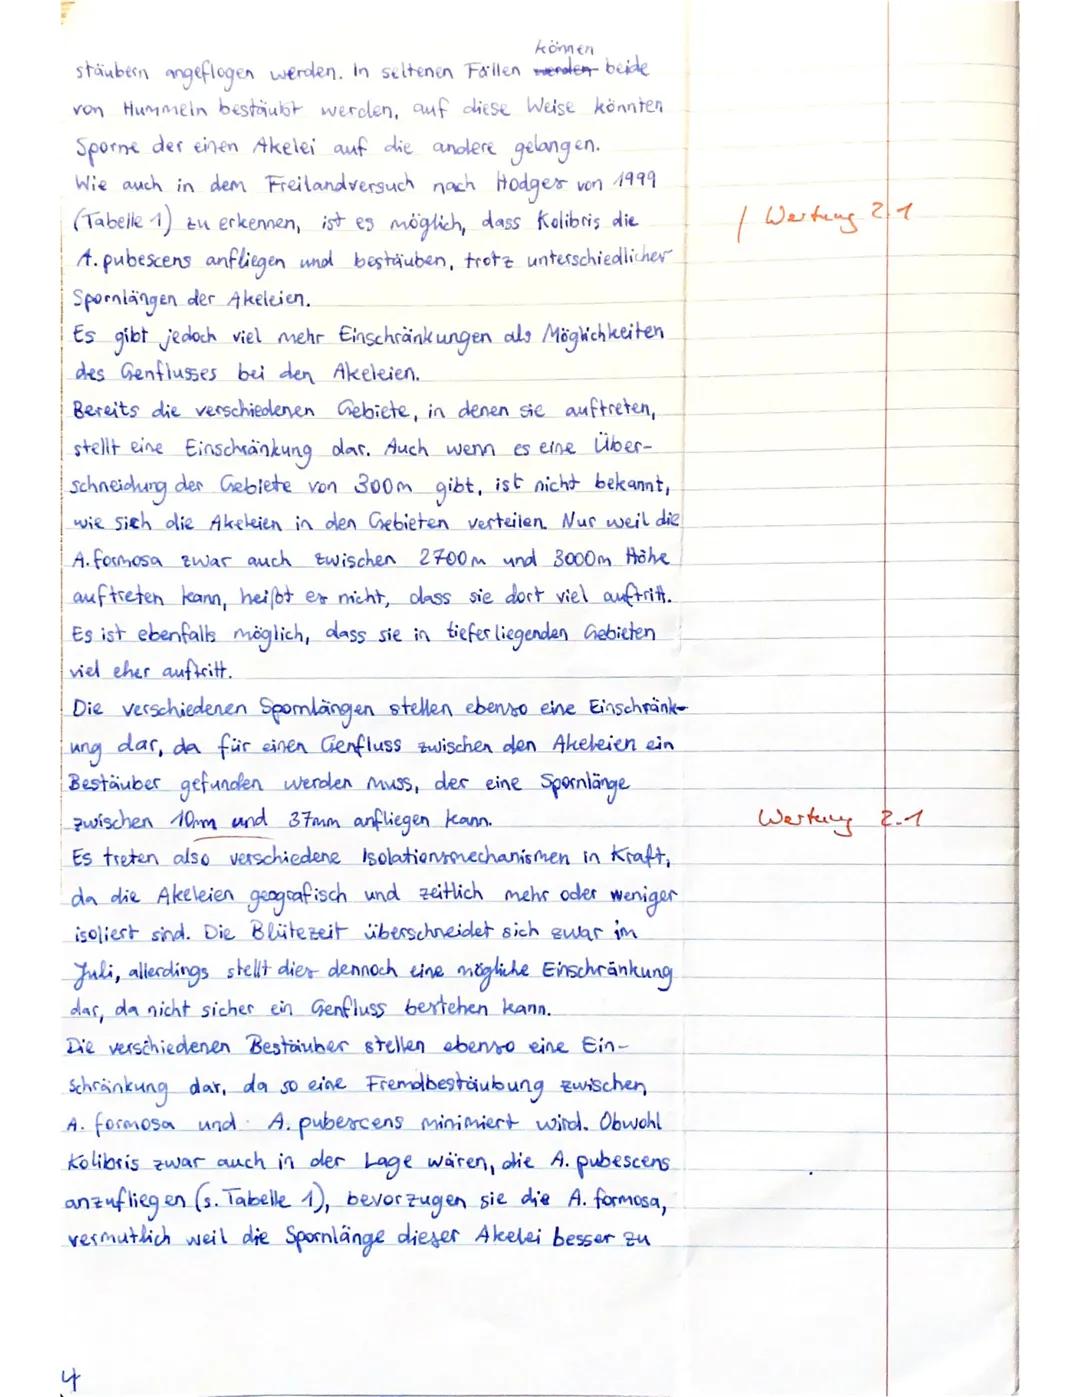 können
stäubern angeflogen werden. In seltenen Fällen werden beide
von Hummeln bestäubt werden, auf diese Weise könnten
Sporne der einen Akelei auf die andere gelangen.
Wie auch in dem Freilandversuch nach Hodges von 1999
(Tabelle 1) zu erkennen, ist es möglich, dass Kolibris die
/ Wertung 2.1
A. pubescens anfliegen und bestäuben, trotz unterschiedlicher
Spornlängen der Akeleien.
Es gibt jedoch viel mehr Einschränkungen als Möglichkeiten
des Genflusses bei den Akeleien.
Bereits die verschiedenen Gebiete, in denen sie auftreten,
stellt eine Einschränkung dar. Auch wenn es eine Über-
schneidung der Gebiete von 300m gibt, ist nicht bekannt,
wie sich die Akeleien in den Gebieten verteilen. Nur weil die
A. formosa zwar auch zwischen 2700m und 3000m Höhe
auftreten kann, heißt es nicht, dass sie dort viel auftritt.
Es ist ebenfalls möglich, dass sie in tieferliegenden Gebieten
viel eher auftritt.
Die verschiedenen Spornlängen stellen ebenso eine Einschränk-
ung dar, da für einen Genfluss zwischen den Akeleien ein
Bestäuber gefunden werden muss, der eine Spornlänge
zwischen 10mm und 37mm anfliegen kann.
Wertung 2.1
Es treten also verschiedene Isolationsmechanismen in Kraft,
da die Akeleien geografisch und zeitlich mehr oder weniger
isoliert sind. Die Blütezeit überschneidet sich zwar im
Juli, allerdings stellt dies dennoch eine mögliche Einschränkung
dar, da nicht sicher ein Genfluss bestehen kann.
Die verschiedenen Bestäuber stellen ebenso eine Ein-
schränkung dar, da so eine Fremdbestäubung zwischen
A. formosa und A. pubescens minimiert wird. Obwohl
Kolibris zwar auch in der Lage wären, die A. pubescens
anzufliegen (s. Tabelle 1), bevorzugen sie die A. formosa,
vermutlich weil die Spornlänge dieser Akelei besser zu
4